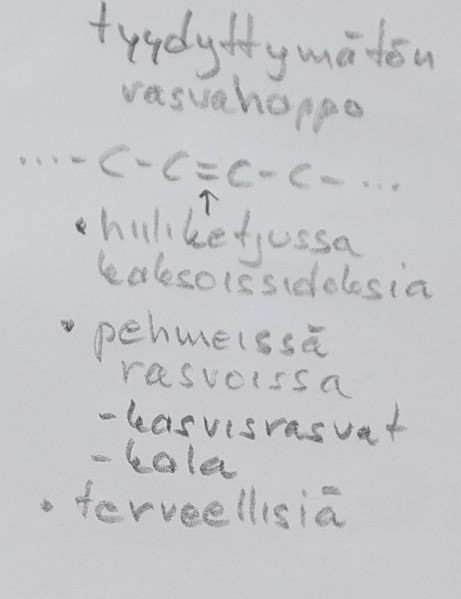 tyydyttymätön
rasvahappo
...- C - C = C - C - ...
↑
• hiiliketjussa
kaksoissidoksia
• pehmeissä
rasvoissa
- kasvisrasvat
- kala
• terveellisiä